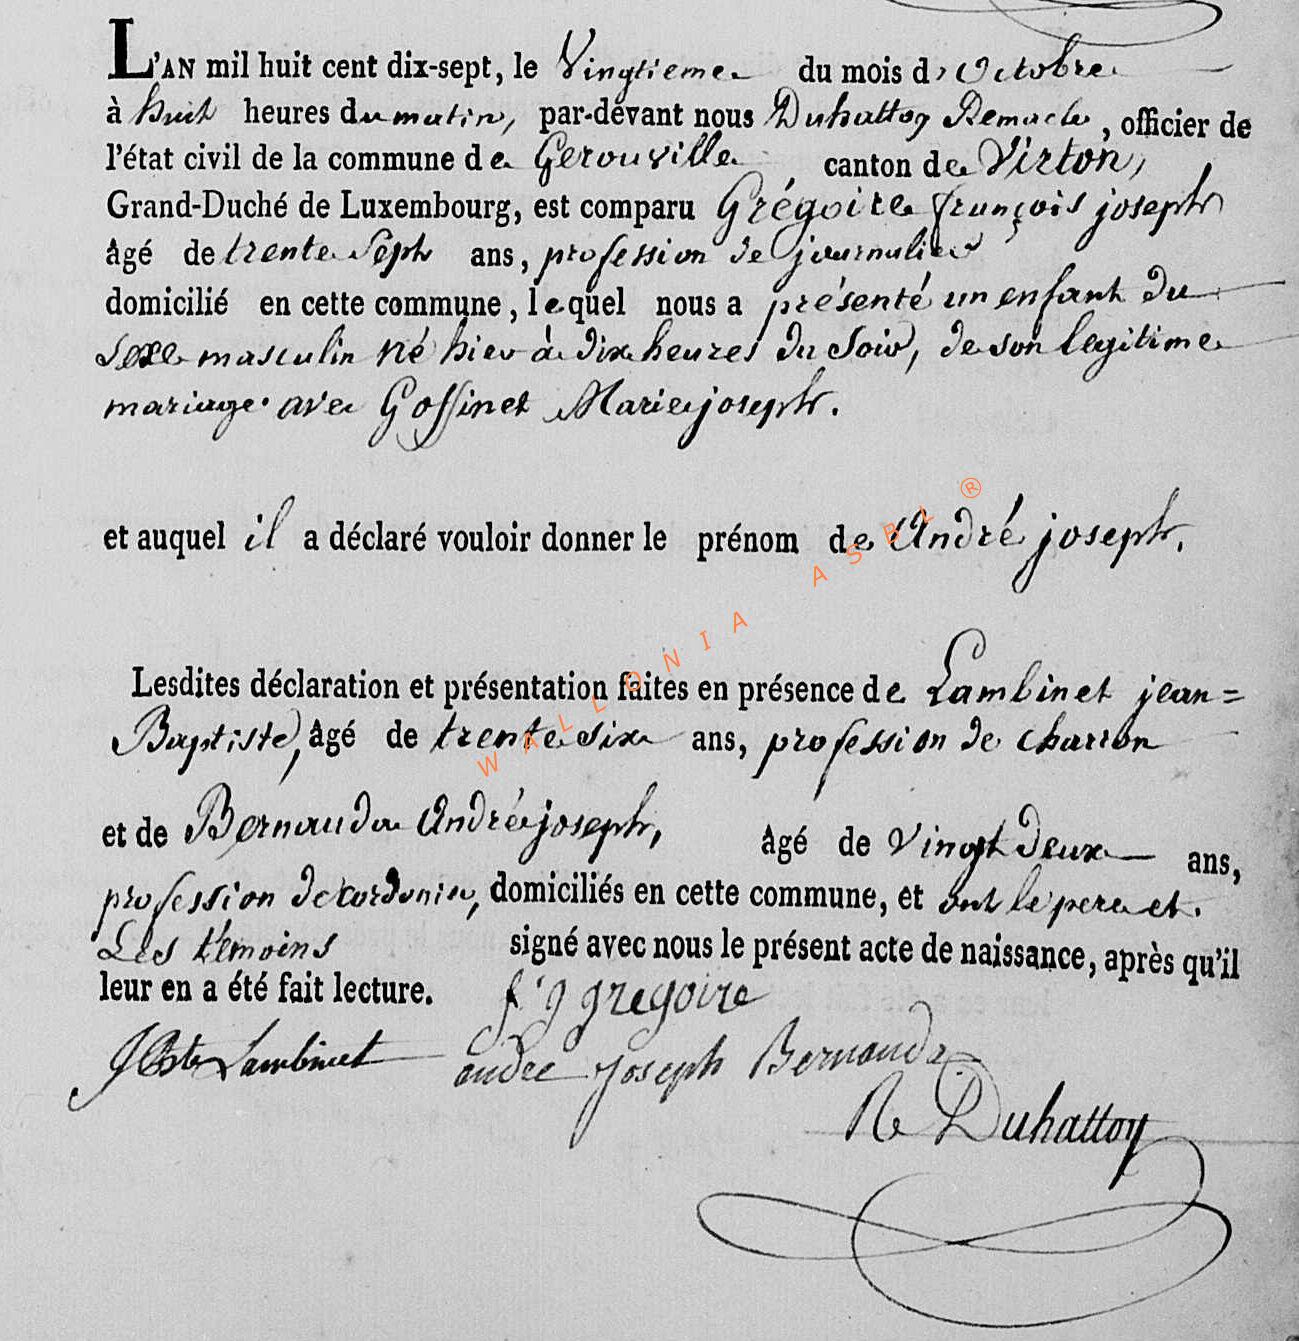 L'AN mil huit cent dix-sept, le Vingtieme du mois d'Octobre
à huit heures du matin, par-devant nous Duhattoy Remacle, officier de
l'état civil de la commune de Gerouville canton de Virton,
Grand-Duché de Luxembourg, est comparu Grégoire françois joseph
âgé de trente Sept ans, profession de journalier
domicilié en cette commune, lequel nous a présenté un enfant du
Sexe masculin né hier à dix heures du Soir, de son legitime
mariage avec Gossinet Marie joseph.
et auquel il a déclaré vouloir donner le prénom de André joseph.
Lesdites déclaration et présentation faites en présence de Lambinet jean=
Baptiste, âgé de trente Six ans, profession de charron
et de Bernauda André joseph, âgé de Vingt Deux ans,
profession de cordonier, domiciliés en cette commune, et ont le pere et
Les temoins signé avec nous le présent acte de naissance, après qu'il
leur en a été fait lecture. f j gregoire
JBte Lambinet andre Joseph Bernauda
Re Duhattoy
WALLONIA ASBL ®